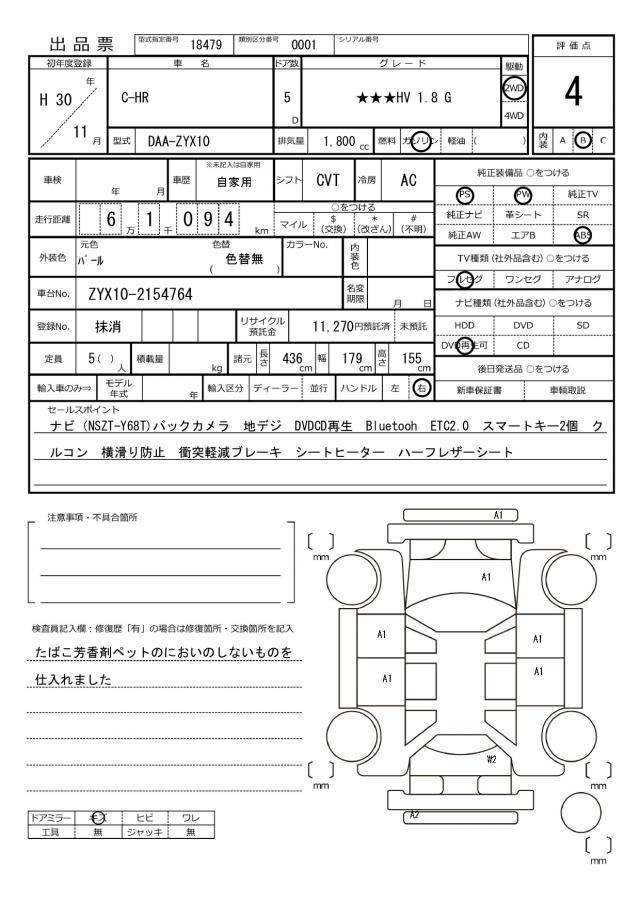 出品票 型式指定番号 18479 類別区分番号 0001 シリアル番号
評価点
初年度登録 車 名 ドア数 グレード 駆動
H 30 年 C-HR 5 D ★★★HV 1.8 G 2WD 4
11 月 4WD
型式 DAA-ZYX10 排気量 1,800 cc 燃料 ガソリン 軽油 ( ) 内装 A B C
車検 年 月 車歴 ※未記入は自家用 自家用 シフト CVT 冷房 AC
純正装備品 ○をつける
PS PW 純正TV
走行距離 6 万 1 千 0 9 4 km ○をつける
マイル $ (交換) * (改ざん) # (不明)
純正ナビ 革シート SR
純正AW エアB ABS
外装色 元色 パール 色替 ( 色替無 ) カラーNo. 内装色
TV種類 (社外品含む) ○をつける
フルセグ ワンセグ アナログ
車台No. ZYX10-2154764 名変期限 月 日
ナビ種類 (社外品含む) ○をつける
登録No. 抹消 リサイクル預託金 11,270円預託済 未預託
HDD DVD SD
DVD再生可 CD
定員 5 ( ) 人 積載量 kg 諸元 長さ 436 cm 幅 179 cm 高さ 155 cm
後日発送品 ○をつける
輸入車のみ⇒ モデル年式 年 輸入区分 ディーラー 並行 ハンドル 左 右
新車保証書 車輌取説
セールスポイント
ナビ (NSZT-Y68T)バックカメラ 地デジ DVDCD再生 Bluetooh ETC2.0 スマートキー2個 ク
ルコン 横滑り防止 衝突軽減ブレーキ シートヒーター ハーフレザーシート
注意事項・不具合箇所
A1
mm mm
A1
検査員記入欄：修復歴「有」の場合は修復箇所・交換箇所を記入
A1 A1
たばこ芳香剤ペットのにおいのしないものを
仕入れました
A1 A1
W2
mm mm
A2
ドアミラー キズ ヒビ ワレ
工具 無 ジャッキ 無
mm